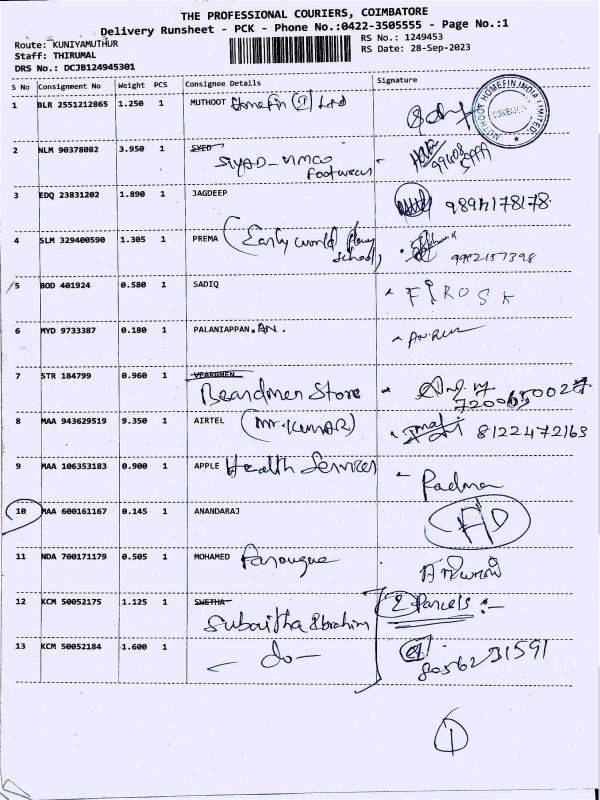 THE PROFESSIONAL COURIERS, COIMBATORE
Delivery Runsheet - PCK - Phone No.:0422-3505555 - Page No.:1
Route: KUNIYAMUTHUR RS No.: 1249453
Staff: THIRUMAL RS Date: 28-Sep-2023
DRS No.: DCJB124945301
S No Consignment No Weight PCS Consignee Details Signature
1 BLR 2551212865 1.250 1 MUTHOOT Homefin (I) Ltd
MUTHOOT HOMEFIN (INDIA) LIMITED
COIMBATORE
2 NLM 90378082 3.950 1 SYED
SIYAD - MMCO
Footwear
3 EDQ 23831202 1.890 1 JAGDEEP 9894178178
4 SLM 329400590 1.305 1 PREMA (Early world play
school) 9902157398
5 BOD 401924 0.580 1 SADIQ FIROSK
6 MYD 9733387 0.180 1 PALANIAPPAN.AN.
7 STR 184799 0.960 1 YEARDMEN
Beardmen Store
8 MAA 943629519 9.350 1 AIRTEL (Mr. KUMAR) 8122472163
9 MAA 106353183 0.900 1 APPLE Health Services
Padma
10 MAA 600161167 0.145 1 ANANDARAJ AD
11 NDA 700171179 0.505 1 MOHAMED Farougue
12 KCM 50052175 1.125 1 SWETHA 2 Parcels :-
Subaitha Ibrahim
13 KCM 50052184 1.600 1 - do -
8056231591
1